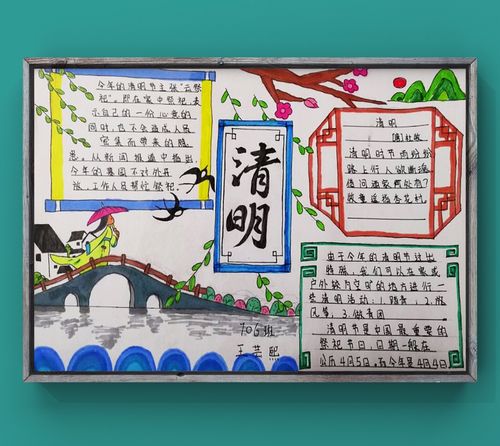 今年的清明节主张“云祭
祀”。即在家中祭祀,表
示自己的一份心意的
同时,也不会造成人员
密集而带来的隐
患。从新闻报道中指出
今年的墓园不对外开
放,工作人员帮忙祭祀。
清明
清明
[唐]杜牧
清明时节雨纷纷
路上行人欲断魂
借问酒家何处有?
牧童遥指杏花村
由于今年的清明节过出
我们可以在家或
户外较为空旷的地方进行一
些清明活动:1、踏青,2、放
风筝,3、做青团
清明节是中国最重要的
祭祀节日,日期一般在
公历4月5日,而今年是4月4日
706班
王芸熙